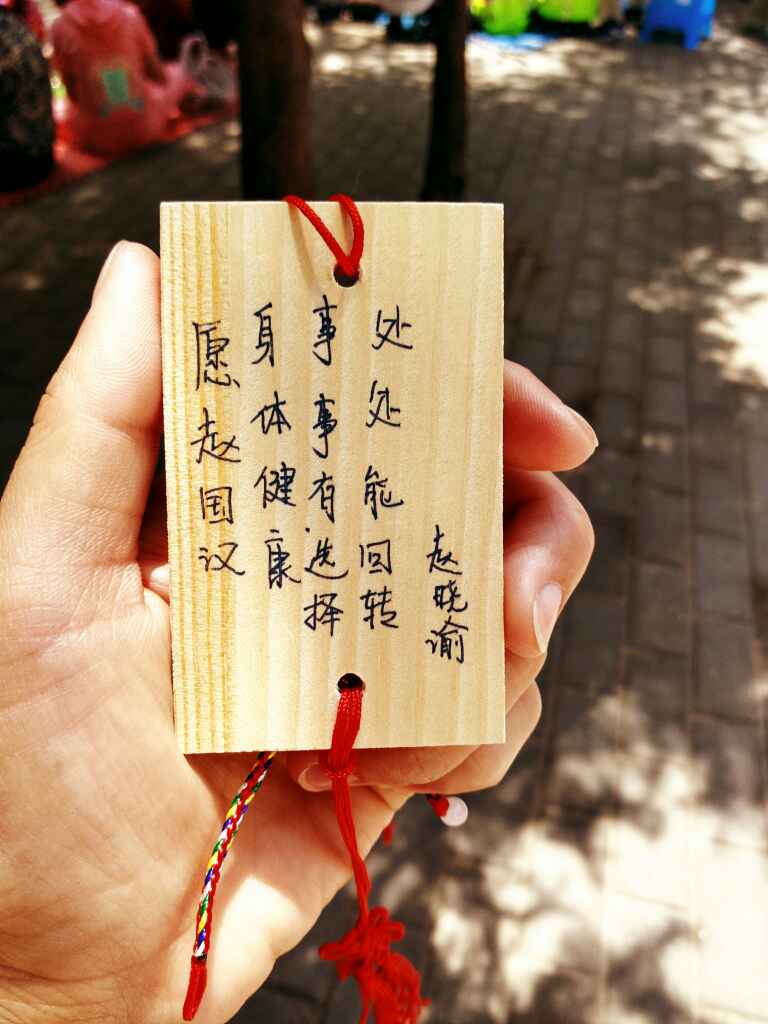 愿赵国汉
身体健康
事事有选择
处处能回转
赵晓谕